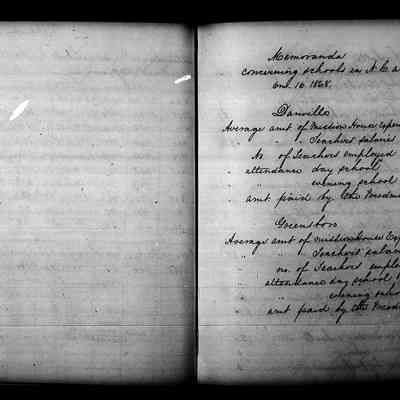 Memoranda
concerning schools in N. C. a
16 1868.
Danville
Average amt of Mission House Expen
" " Teachers salaries
No of Teachers employed
" attendance day school
" " evening school
" amt paid by the Freedm
Greensboro
Average amt of mission House Exp
" " Teachers salar
" no. of Teachers employ
attendance day school
" evening scho
amt paid by the Freedm